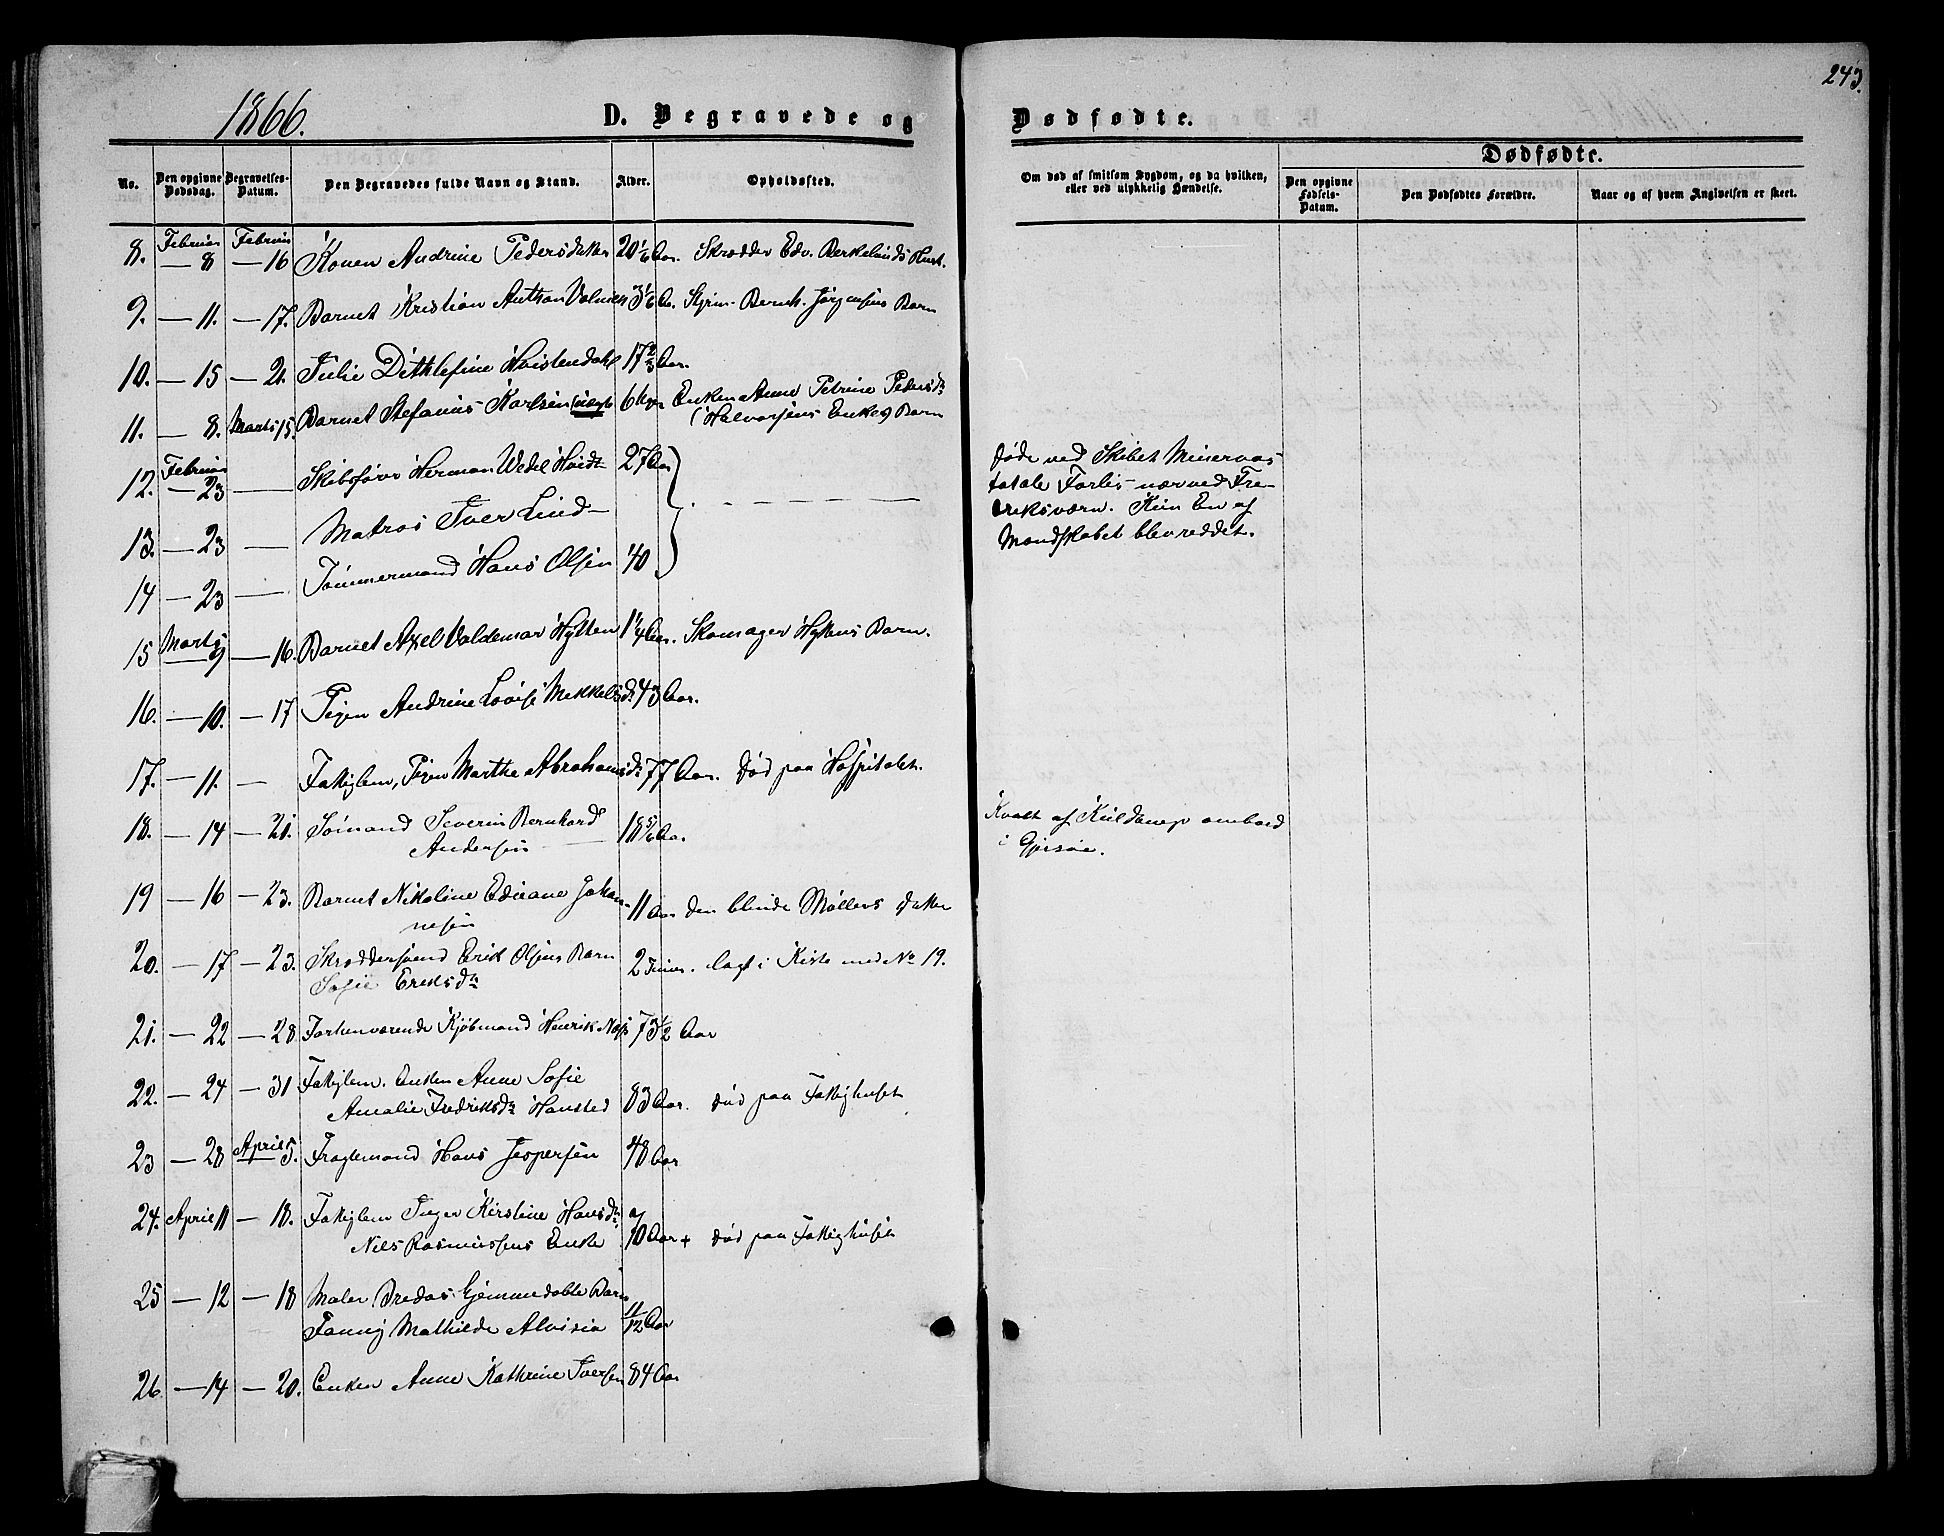 243.
1866.
D. Begravede og
Dødfødte.
No.
Den opgivne Dødsdag.
Begravelses-Datum.
Den Begravedes fulde Navn og Stand.
Alder.
Opholdssted.
Om død af smitsom Sygdom, og da hvilken, eller ved ulykkelig Hændelse.
Dødfødte.
Den opgivne Fødsels-Datum.
Den Dødfødtes Forældre.
Naar og af hvem Angivelsen er skeet.
8. Februar 8 Februar 16 Konen Andrine Pedersdatter 20 1/6 Aar. Skrædder Edv. Berkelands Hust.
9. — 11. — 17. Barnet Kristian Anthon 3 1/6 A. Bernh. Jørgensens Barn
10. — 15 — 21. Julie Dithlefine Hvistendahl 17 2/3 Aar.
11. — 8. Marts 15. Barnet Stefanus Karlsen (uægte) 6 Uger Enken Anne Petrine Pedersd:
(Halvorsens Enke) Barn
12. Februar — 23 — Skibsfører Herman Wedel 27 Aar
13. — 23 — Matros Iver Lind —
14 — 23 — Tømmermand Hans Olsen 40
Døde ved Skibet Minervas
totale Forlis nær ved Fre-
driksværn. Kun En af
Mandskabet blev reddet.
15 Marts 9 — 16. Barnet Axel Valdemar Hytten 1 1/4 Aar. Skomager Hyttens Barn.
16. — 10. — 17 Pigen Andrine Lovise Mekkelsd: 43 Aar.
17. — 11. — Fattiglem, Pigen Marthe Abrahamsd: 77 Aar. Død paa Hospitalet.
18. — 14 — 21. Sømand Severin Bernhard
Andersen 18 5/6 Aar.
Kvalt af Kuldamp ombord
i
19 — 16 — 23. Barnet Nikoline Johan-
nesen 11 Aar den blinde Møllers Datter
20. — 17 — 23. Skræddersvend Erik Olsens Barn
Sofie Eriksd: 2 Timer. lagt i Kiste med No 19.
21. — 22 — 28 Forhenværende Kjøbmand Henrik 73 1/2 Aar
22. — 24 — 31 Fattiglem. Enken Anne Sofie
Amalie Fredriksd: Hansted 83 Aar. Død paa Fattighuset
23 — 28 April 5. Fragtemand Hans Jespersen 48 Aar
24. April 11 — 18. Fattiglem Inger Kirstine Hansd:
Nils Rasmussens Enke 70 Aar + Død paa Fattighuset
25 — 12 — 18 Maler Barn
Fanny Mathilde Alvisia 11/12 Aar
26. — 14 — 20. Enken Anne Kathrine Iversen 84 Aar